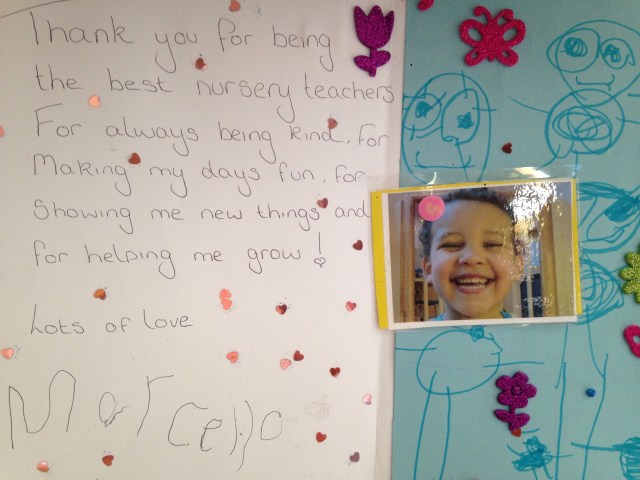 Thank you for being
the best nursery teachers
For always being kind, for
Making my days fun, for
Showing me new things and
for helping me grow!
Lots of love
Marcello